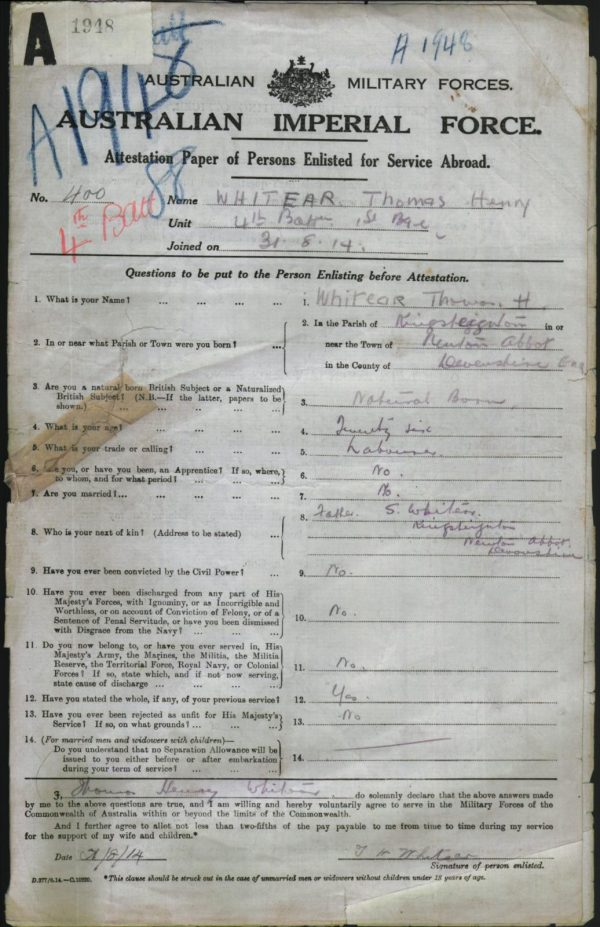 A
1948
Batt
A 1948
A 1948
88
AUSTRALIAN MILITARY FORCES.
AUSTRALIAN IMPERIAL FORCE.
Attestation Paper of Persons Enlisted for Service Abroad.
No. 400 Name WHITEAR Thomas Henry
4th Batt
Unit 4th Batn 1st Bde
Joined on 31.8.14.
Questions to be put to the Person Enlisting before Attestation.
1. What is your Name? ... ... ... ... 1. Whitear Thomas. H
2. In or near what Parish or Town were you born? ... 2. In the Parish of Kingsteignton in or
near the Town of Newton Abbot
in the County of Devonshire Eng
3. Are you a natural born British Subject or a Naturalized
British Subject? (N.B.—If the latter, papers to be
shown.) ... 3. Natural Born
4. What is your age? ... 4. Twenty six
5. What is your trade or calling? ... 5. Labourer
6. Are you, or have you been, an Apprentice? If so, where,
to whom, and for what period? ... 6. No.
7. Are you married?... 7. No.
8. Who is your next of kin? (Address to be stated) ... 8. Father S. Whitear
Kingsteignton
Newton Abbot
Devonshire
9. Have you ever been convicted by the Civil Power? ... 9. No.
10. Have you ever been discharged from any part of His
Majesty's Forces, with Ignominy, or as Incorrigible and
Worthless, or on account of Conviction of Felony, or of a
Sentence of Penal Servitude, or have you been dismissed
with Disgrace from the Navy? ... 10. No.
11 Do you now belong to, or have you ever served in, His
Majesty's Army, the Marines, the Militia, the Militia
Reserve, the Territorial Force, Royal Navy, or Colonial
Forces? If so, state which, and if not now serving,
state cause of discharge ... 11. No.
12. Have you stated the whole, if any, of your previous service? 12. Yes
13. Have you ever been rejected as unfit for His Majesty's
Service? If so, on what grounds? ... 13. No
14. (For married men and widowers with children)—
Do you understand that no Separation Allowance will be
issued to you either before or after embarkation
during your term of service? ... 14.
I, Thomas Henry Whitear do solemnly declare that the above answers made
by me to the above questions are true, and I am willing and hereby voluntarily agree to serve in the Military Forces of the
Commonwealth of Australia within or beyond the limits of the Commonwealth.
And I further agree to allot not less than two-fifths of the pay payable to me from time to time during my service
for the support of my wife and children.*
Date /8/14 T H Whitear
Signature of person enlisted.
D.277/8.14.—C.10220. *This clause should be struck out in the case of unmarried men or widowers without children under 18 years of age.